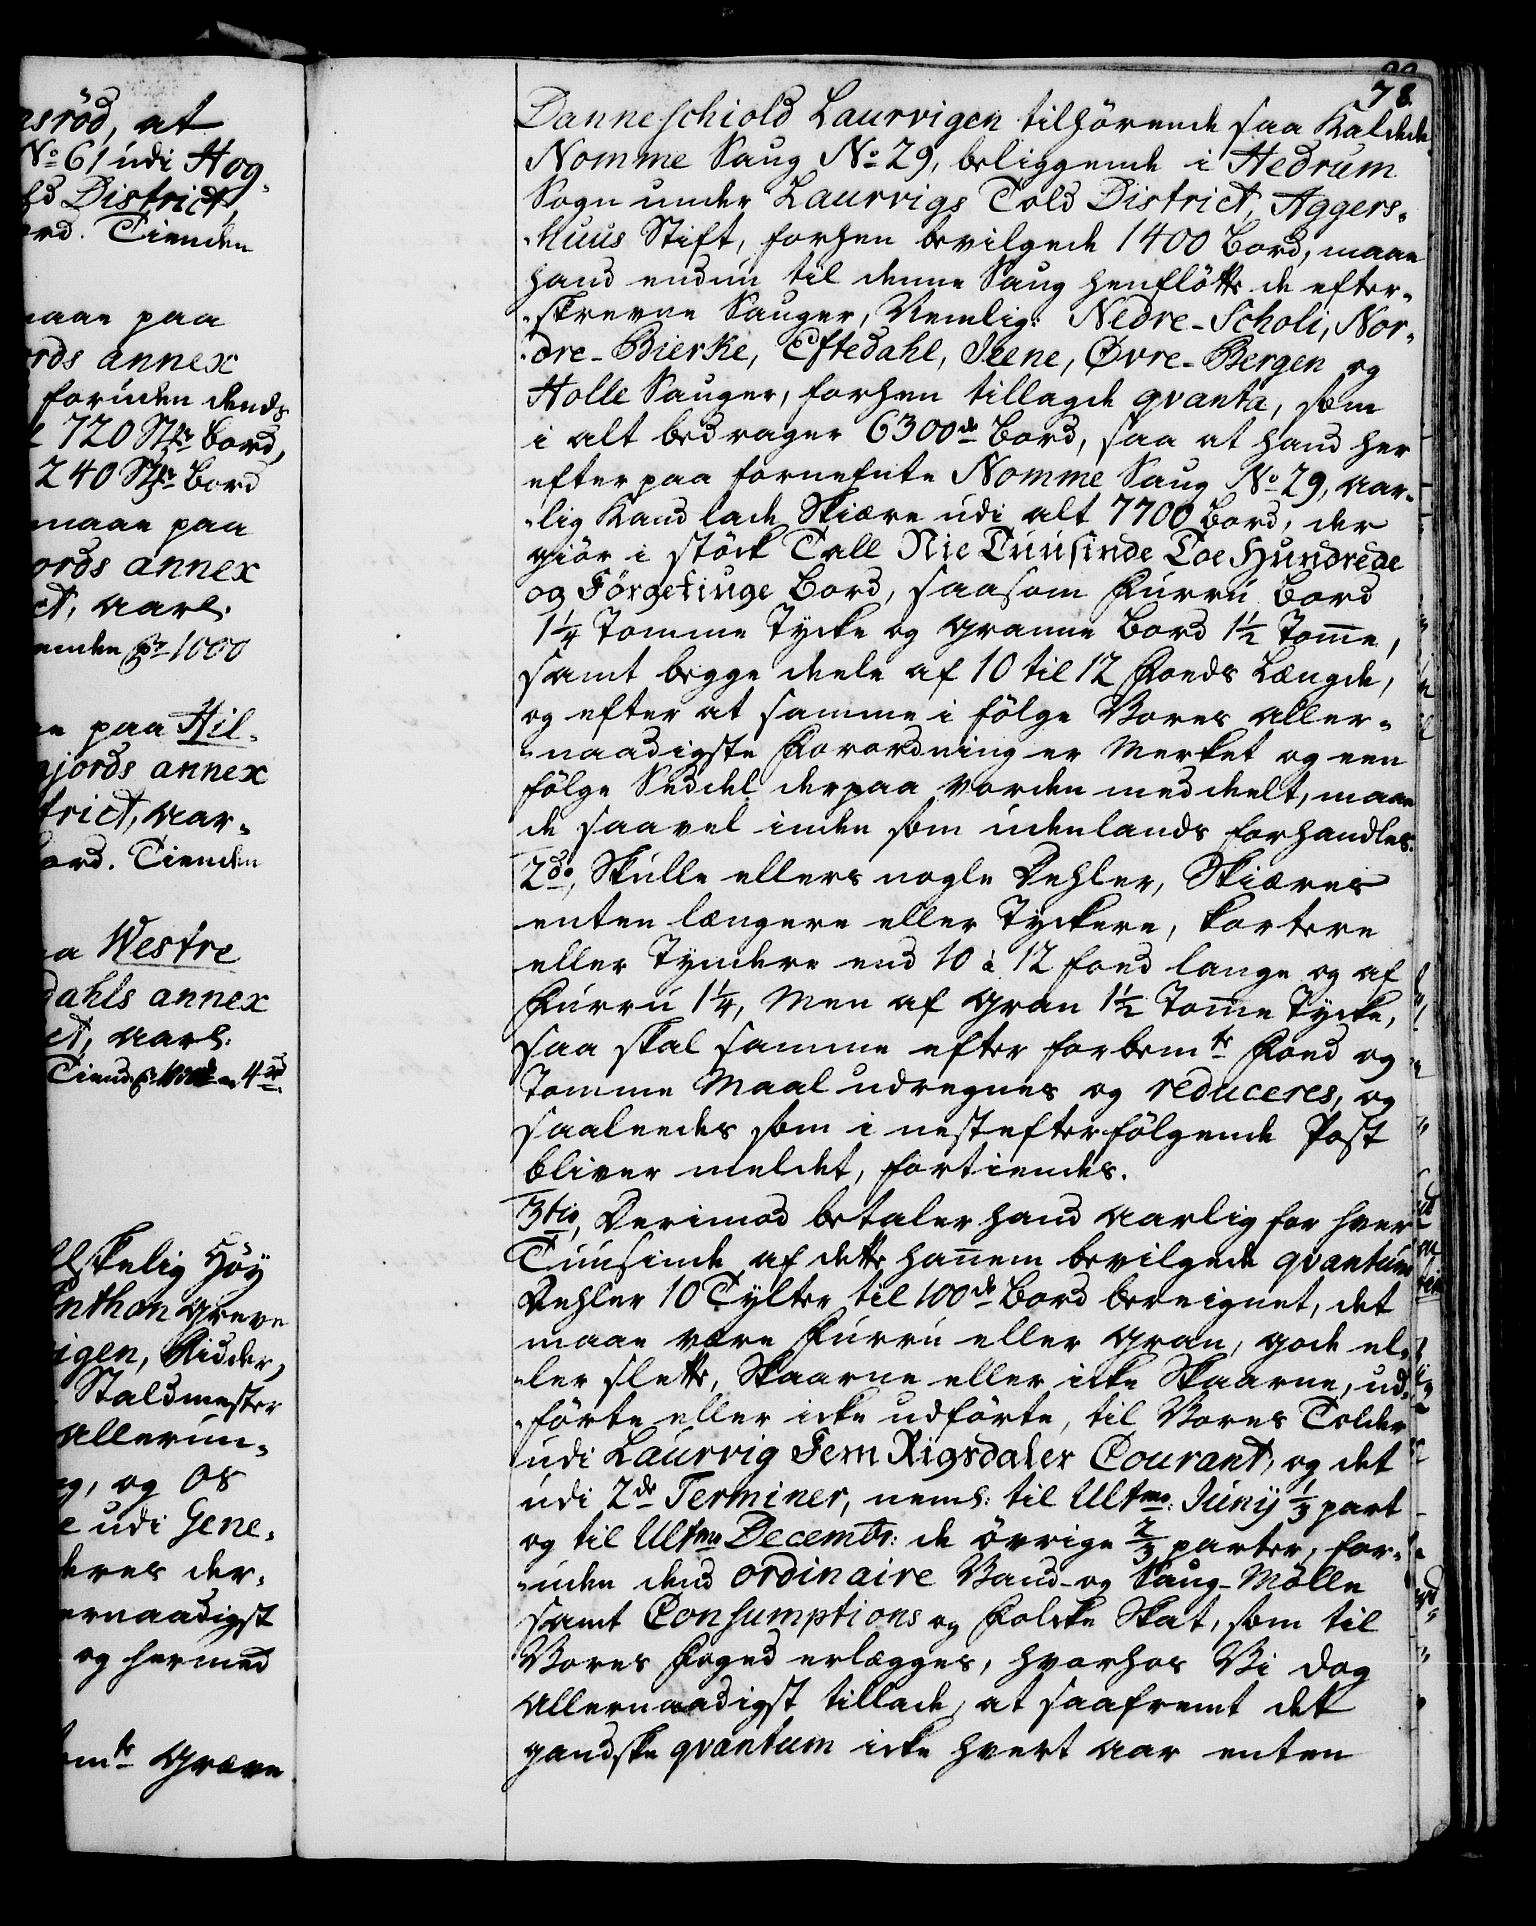 esröd, at
No 61 udi Hog-
District
Tienden
maae paa
ords annex
foruden dends
720 Stkr Bord,
240 Stkr Bord
maae paa
ords annex
aarl.
1000
paa Hil-
gjords annex
trict, aar-
Tienden
Westre
dahls annex
aarl.
skelig Höy
Anthon Greve
igen, Ridder,
Staldmester
Allerun-
og Os
udi Gene-
deres der-
ernaadigst
og hermed
Græve
78.
Danneschiold Laurvigen tilhörende saa kaldede
Nomme Saug No 29, beliggende i Hedrum
Sogn under Laurvigs Told District, Aggers-
-huus Stift, forhen bevilgede 1400 Bord, maae
hand endnu til denne Saug henflötte de efter-
-skrevne Sauger, Nemlig: Nedre-Scholi, Nor-
-dre-Bierke, Eftedahl, Øvre-Bergen og
Holle Sauger, forhen tillagde qvanta, som
i alt bedrager 6300de Bord, saa at hand her
efter paa fornefnte Nomme Saug No 29, aar-
-lig kand lade Skiære udi alt 7700 Bord, der
giör i stöck Tall Nie Tuusinde Toe Hundrede
og Förgetiuge Bord, saasom Furru Bord
1¼ Tomme Tycke og Granne Bord 1½ Tome,
samt begge deele af 10 til 12 Foeds Længde,
og efter at samme i fölge Vores Aller-
-naadigste Forordning er Merket og een
fölge Seddel derpaa vorden meddeelt, maae
de saavel inden som udenlands forhandles.
2do, Skulle ellers nogle Dehler, Skiæres
enten længere eller Tyckere, kortere
eller Tyndere end 10 à 12 foed lange og af
Furru 1¼, Men af Gran 1½ Tome Tycke,
saa skal samme efter forbemte Foed og
Tomme Maal udregnes og reduceres, og
saaleedes som i nestefterfölgende Post
bliver meldet, fortiendes.
3tio, Derimod betaler hand aarlig for hver
Tuusinde af dette hanem bevilgede qvantum
Dehler 10 Tylter til 100de Bord bereignet, det
maae være Furru eller Gran, gode el-
-ler slette, Skaarne eller icke Skaarne, ud-
-förte eller icke udförte, til Vores Tolder
udi Laurvig Fem Rigsdaler Courant, og det
udi 2de Terminer, neml: til Ultmo: Junij ⅓ part
og til Ultmo Decembr: de övrige ⅔ parter, for-
-uden dend ordinaire Vand- og Saug-Mölle
samt Consumptions og Folcke Skat, som til
Vores Foged erlægges, hvorhos Vi dog
Allernaadigst tillade, at saafremt det
gandske qvantum icke hvert Aar enten